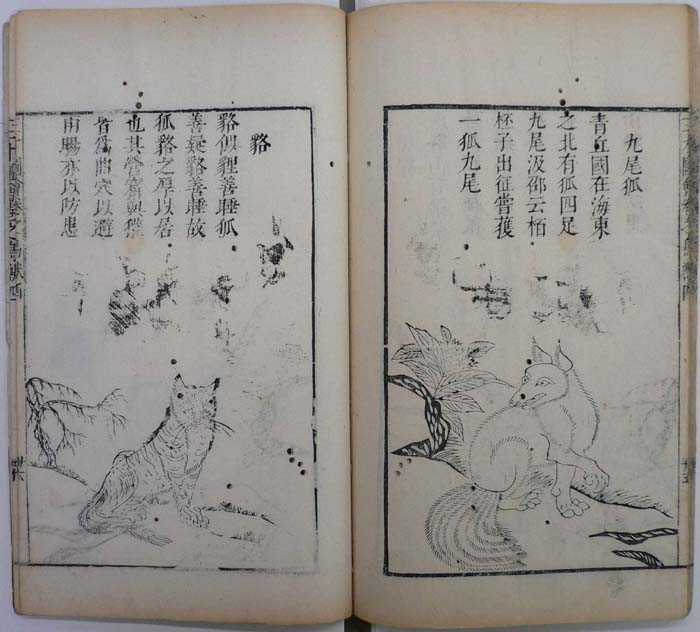 九尾狐
青丘國在海東
之北有狐四足
九尾汲邵云栢
柸子出征嘗獲
一狐九尾
貉
貉似貍善睡狐
善疑貉善睡故
狐貉之厚以居
也其營窟與獾
皆爲曲穴以避
雨暘亦以防患